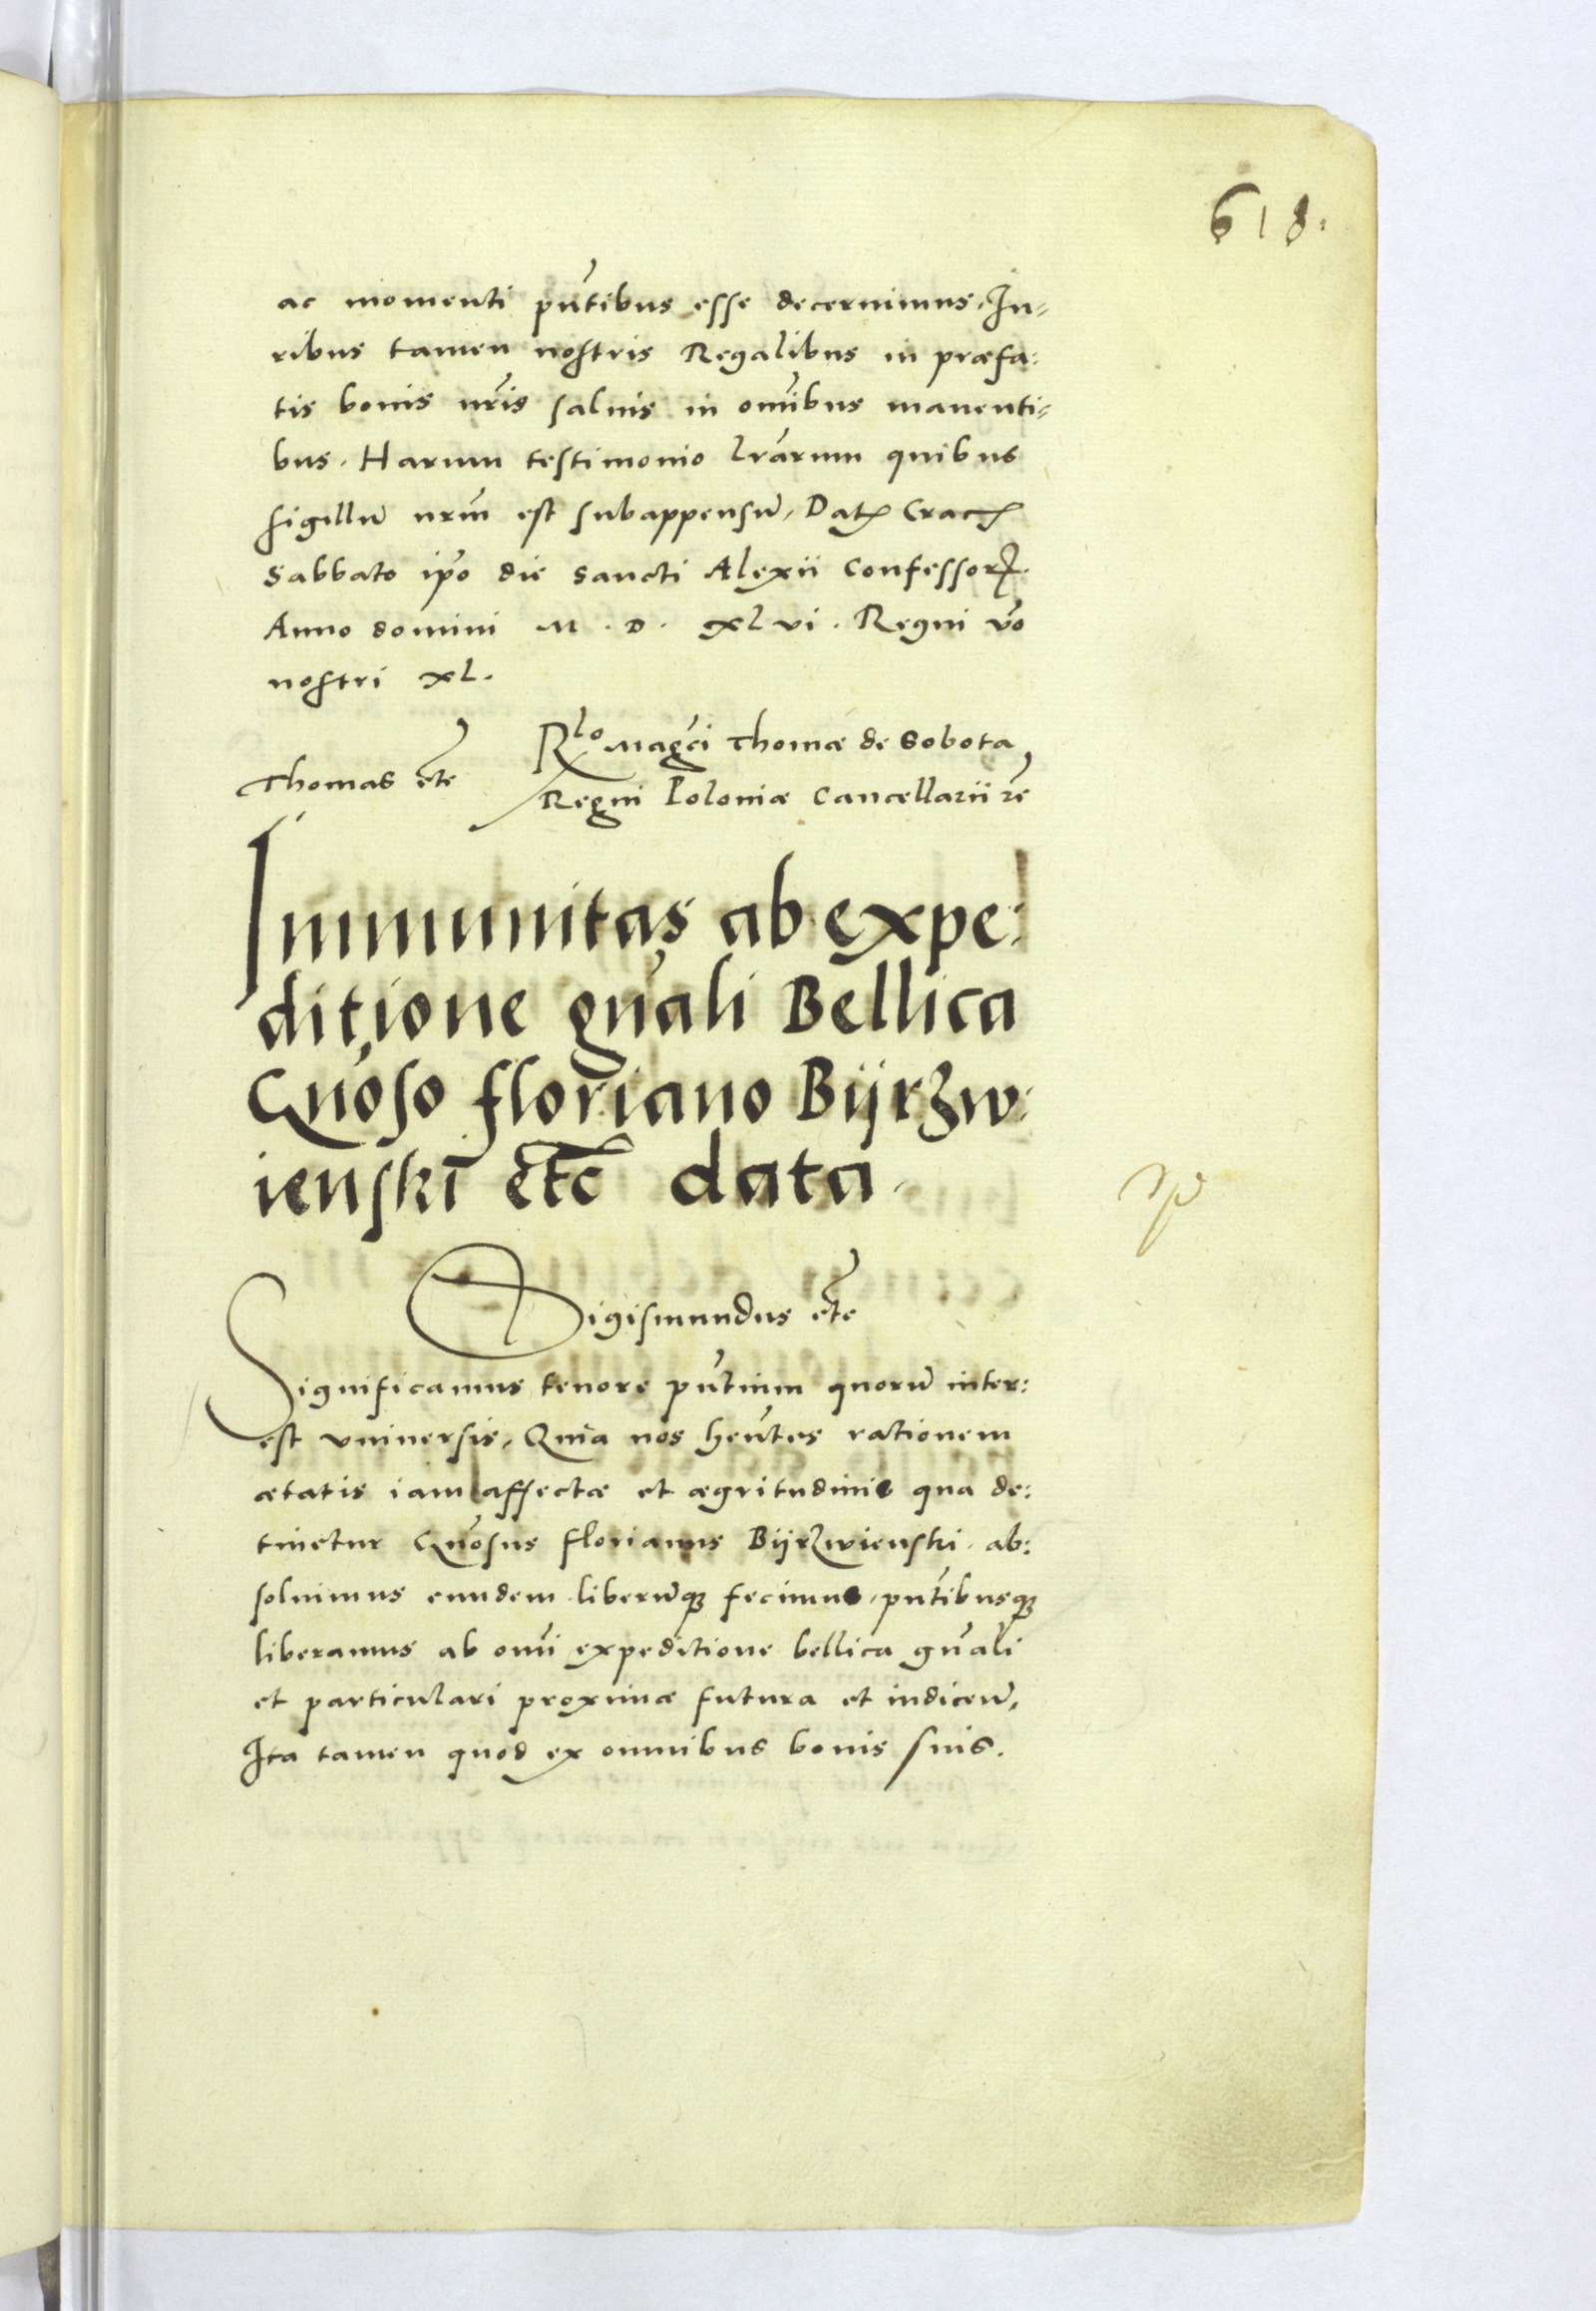 618.
ac momenti pñtibus esse decernimus. Iu-
ribus tamen nostris Regalibus in præfa:
tis bonis nr̃is saluis in om̃ibus manenti-
bus. Harum testimonio lr̃arum quibus
sigillũ nrm̃ est subappensũ. Datꝭ Cracꝭ
Sabbato ip̃o die sancti Alexii Confessorꝭ.
Anno domini M. D. XLVI. Regni ṽo
nostri XL.
Rlo Magci Thomæ de Sobota
Thomas etc̃
Regni Poloniæ Cancellarii rẽ
Immunitas ab expe:
ditione gñali Bellica
Gñoso floriano Bÿrzw:
ienski etc̃ data.
Sigismundus etc̃
Significamus tenore pñtium quorũ inter:
est vniuersis, Quia nos hẽntes rationem
ætatis iam affectæ et ægritudinis qua de:
tinetur Gñosus florianus Bÿrzwienski. ab:
soluimus eundem liberũqꝫ fecimus, pñtibusqꝫ
liberamus ab om̃i expeditione bellica gñali
et particulari proximæ futura et indicen̄,
Ita tamen quod ex omnibus bonis suis.